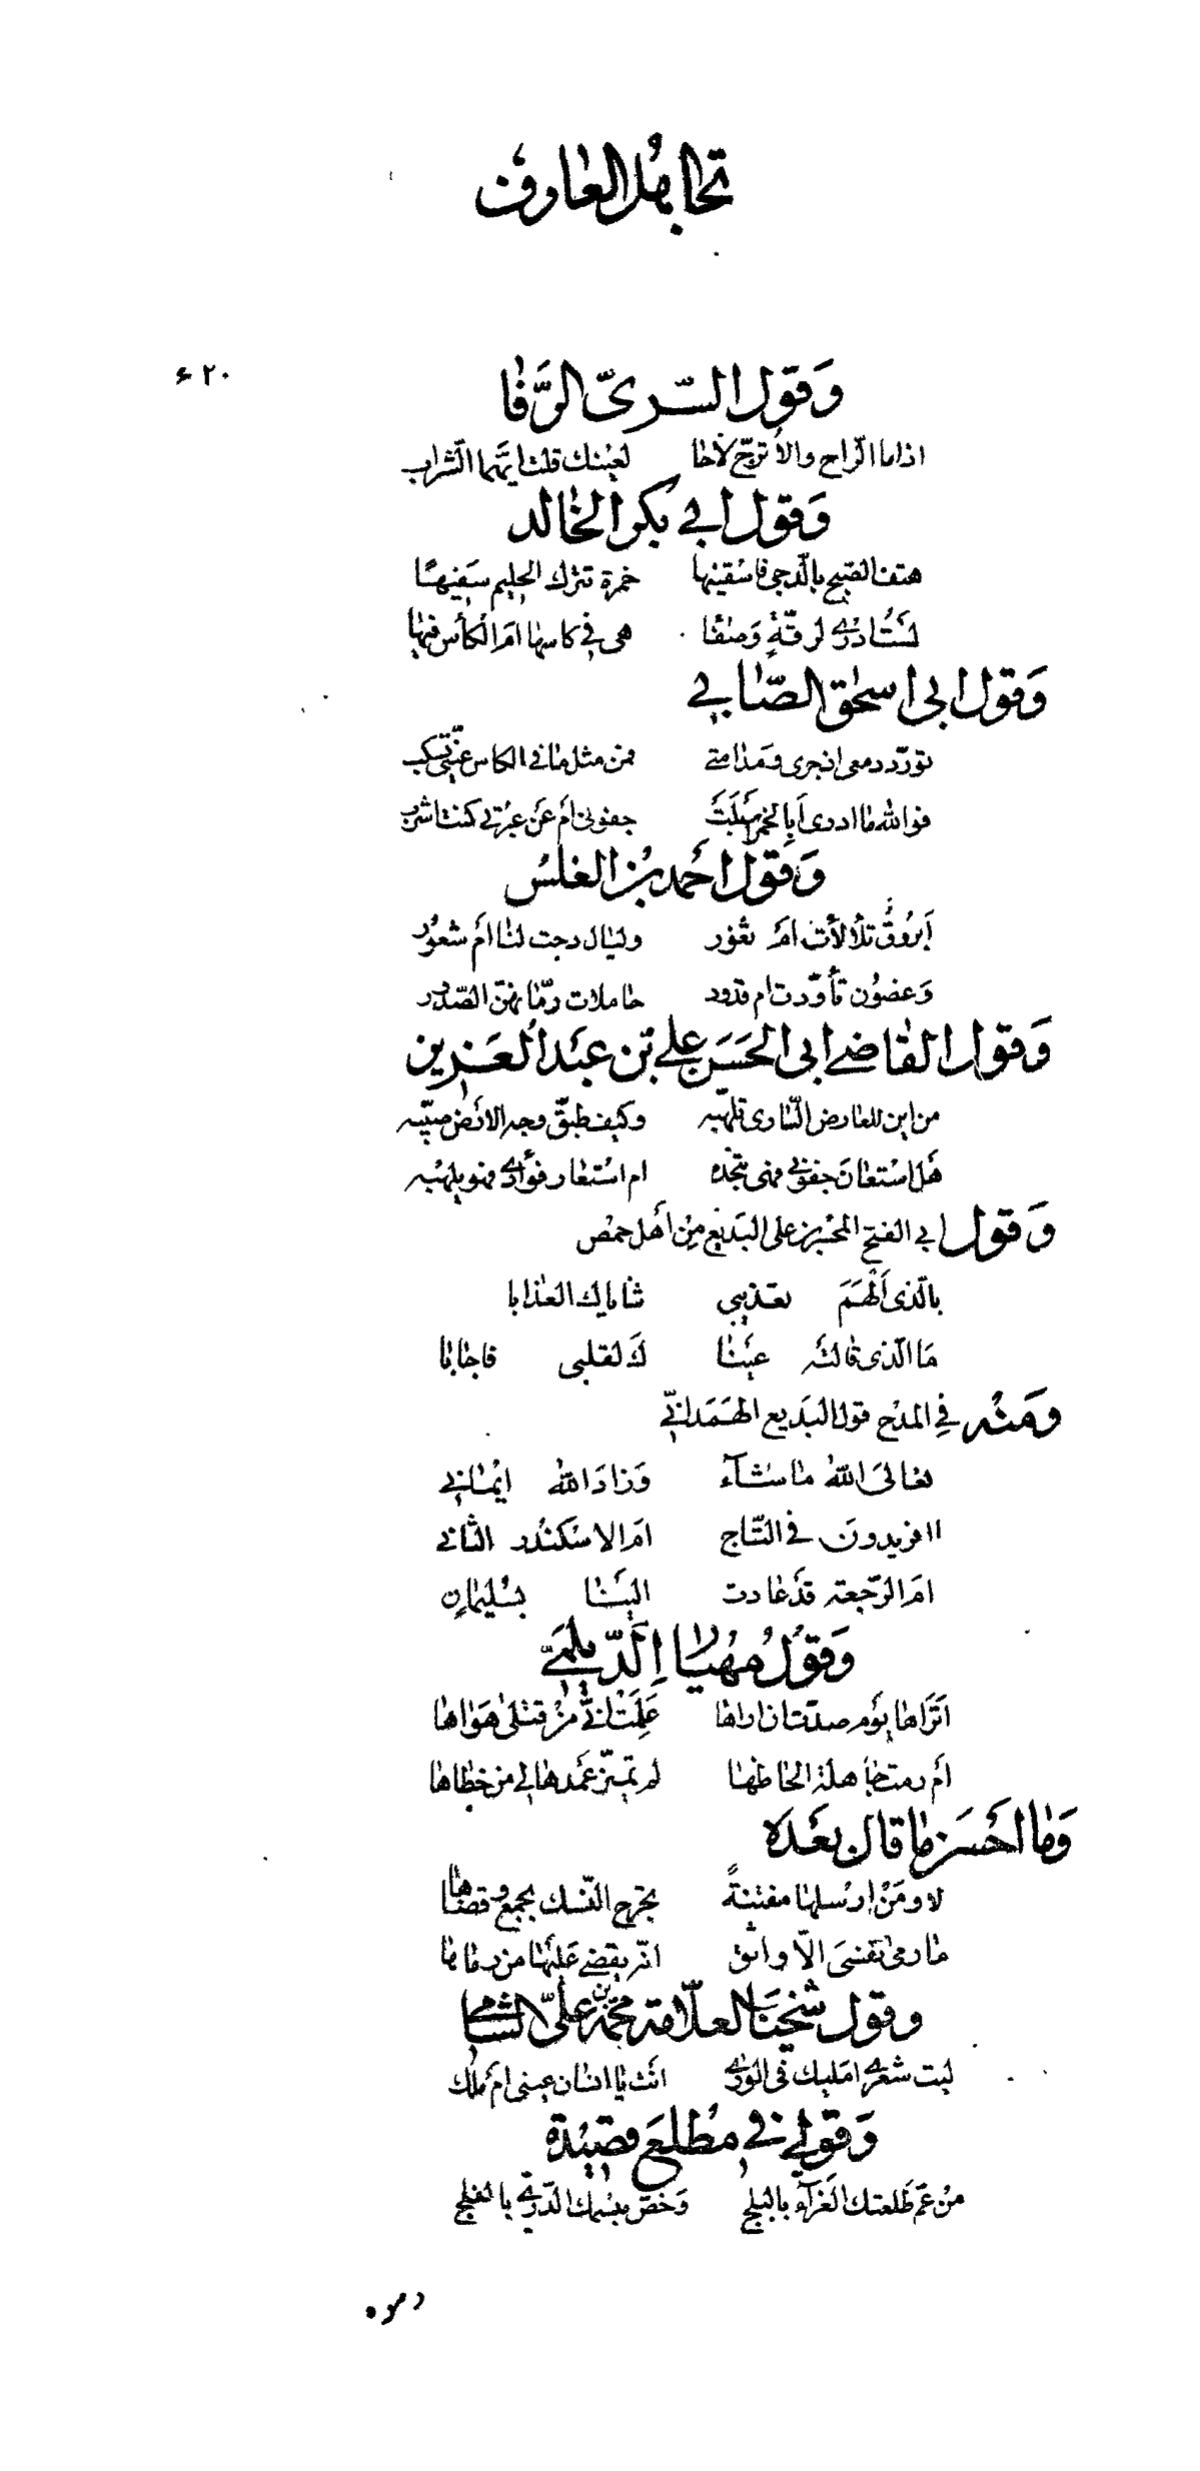 تجاهل العارف
٢٠٤
وَقول السّريّ الرَّفا
اذا ما الرّاح والاُترجّ لاحا لعينك قلت ايّهما الشّراب
وَقول ابي بكر الخالد
هتف الصّبح بالدّجى فاسقنيها خمرة تترك الحليم سَفيهًا
لسْتُ ادرى لرقّةٍ وَصفا هى في كاسها امَ الكأس فيها
وَقول ابى اسحٰق الصّابي
تورّد دمعى اذ جرى وَمدامتى فمن مثل ما في الكاس عيني تسكب
فوالله ما ادرى اَبالخمر اسبَلَتْ جفونى اَم عَن عبرتى كنت اشرب
وَقول احمد بن المغلس
اَبروُق تلألأت امَ ثغور وليال دجت لنا اَم شعوُر
وَغصوُن تأوّدت ام قدود حاملات رمّانهنّ الصّدور
وَقول القاضي ابى الحَسَن علي بن عَبْد العَزيز
من اين للعارض السّارى تلهّبه وكيف طبّق وجه الارَض صيّبه
هَل استعانَ جفونى فهى تنجده ام استعار فؤادى فهو يلهبه
وَقول ابي الفتح المحسن علي البَديع مِن اَهل حمص
بالّذى اَلهَمَ تعذيبي ثناياك العذابا
مَا الّذى قالته عينا كَ لقلبى فاجابا
ومَنْه في المدْح قول البَديع الهَمَدانيّ
تعالىَ الله ما شآء وَزادَ الله ايمانى
اافريدونَ في التّاج امَ الاسكندر الثانى
امَ الرّجعة قدْ عادت اليَنا بسُليمانٍ
وَقوُل مهيار الدّيلميّ
اَترَاها يوَم صدّت ان اراها عَلِمَت انّى منْ قتلى هَوَاها
اَم رمت جاهلة الحاظها لم تميّز عَمدها لي من خطاها
وَما احْسَن ما قال بعَده
لا ومَنْ ارسلها مفتنةً بحرج النّسك بجمع وقضاها
ما رمى نفسىَ الّا واثق انّه يقضي عَلَيْها من رماها
وقول شيخنا العلّامة محمّد بن عليّ الشامي
ليت شعرى امليك في الورى انت يا انسان عينى اَم مَلك
وَقولي في مطلع قصيدة
منْ عمّ طَلعتك الغرآء بالبلج وَخصّ مبسمك الدّرّيّ بالفلج